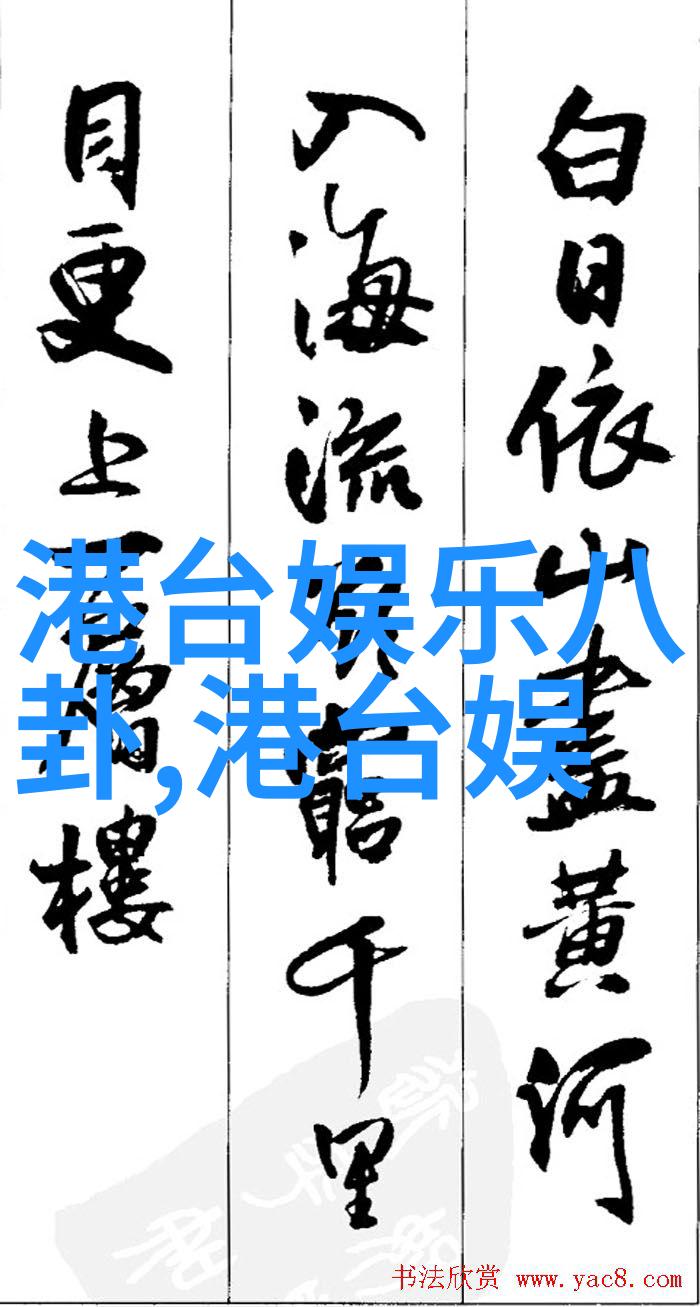 白日依山盡黄河
入海流欲窮千里
目更上一層樓
港台娱乐八
卦,港台娱
书法欣赏 www.yac8.com